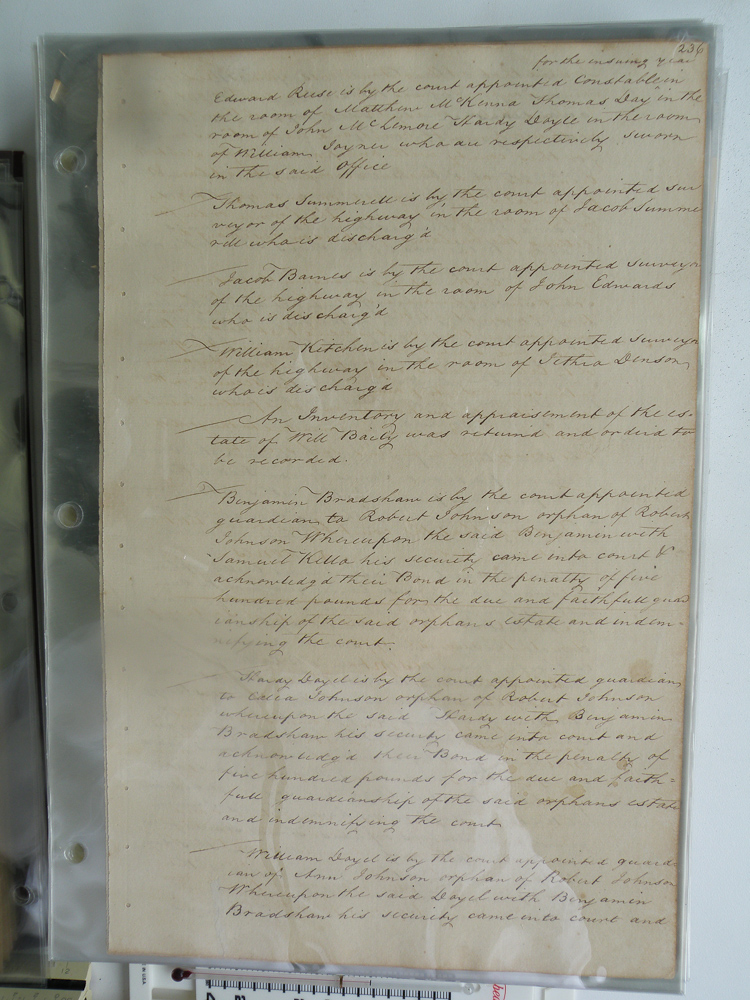 236
for the ensuing year
Edward Reese is by the court appointed Constable in
the room of Matthew McKenna Thomas Day in the
room of John McLemore Hardy Doyle in the room
of William Joyner who are respectively sworn
in the said Office
Thomas Summerell is by the court appointed sur
veyor of the highway in the room of Jacob Summe
rell who is discharg'd
Jacob Barnes is by the court appointed surveyor
of the highway in the room of John Edwards
who is discharg'd
William Kitchen is by the court appointed surveyor
of the highway in the room of Jethro Denson
who is discharg'd
An Inventory and appraisement of the es-
tate of Will Baily was returnd and orderd to
be recorded.
Benjamin Bradshaw is by the court appointed
guardian to Robert Johnson orphan of Robert
Johnson Whereupon the said Benjamin with
Samuel Kello his security came into court &
acknowledg'd their Bond in the penalty of five
hundred pounds for the due and faithfull guar
ianship of the said orphan's estate and indem-
nifying the court.
Hardy Doyel is by the court appointed guardian
to Johnson orphan of Robert Johnson
whereupon the said Hardy with Benjamin
Bradshaw his security came into court and
acknowledg'd their Bond in the penalty of
five hundred pounds for the due and faith=
full guardianship of the said orphans estate
and indemnifying the court
William Doyel is by the court appointed guard-
ian of Ann Johnson orphan of Robert Johnson
Whereupon the said Doyel with Benjamin
Bradshaw his security came into court and